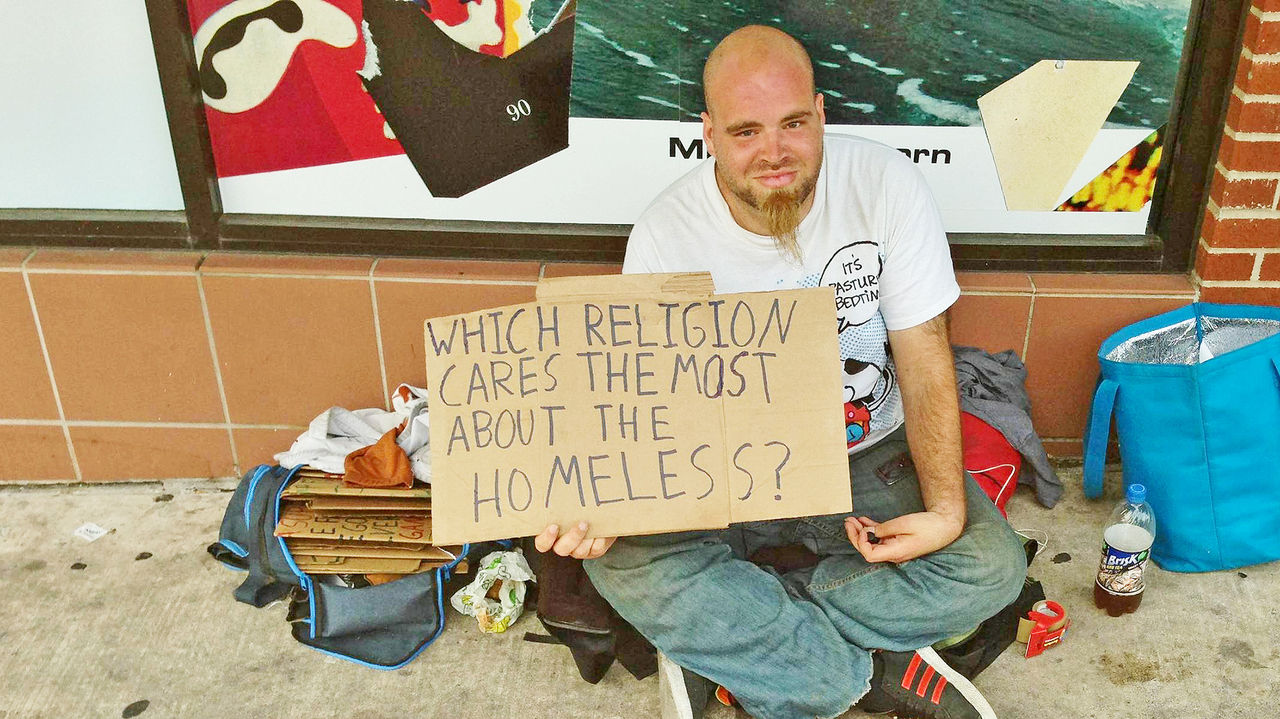 90
IT'S
BEDTIM
WHICH RELIGION
CARES THE MOST
ABOUT THE
HOMELESS?
Brisk